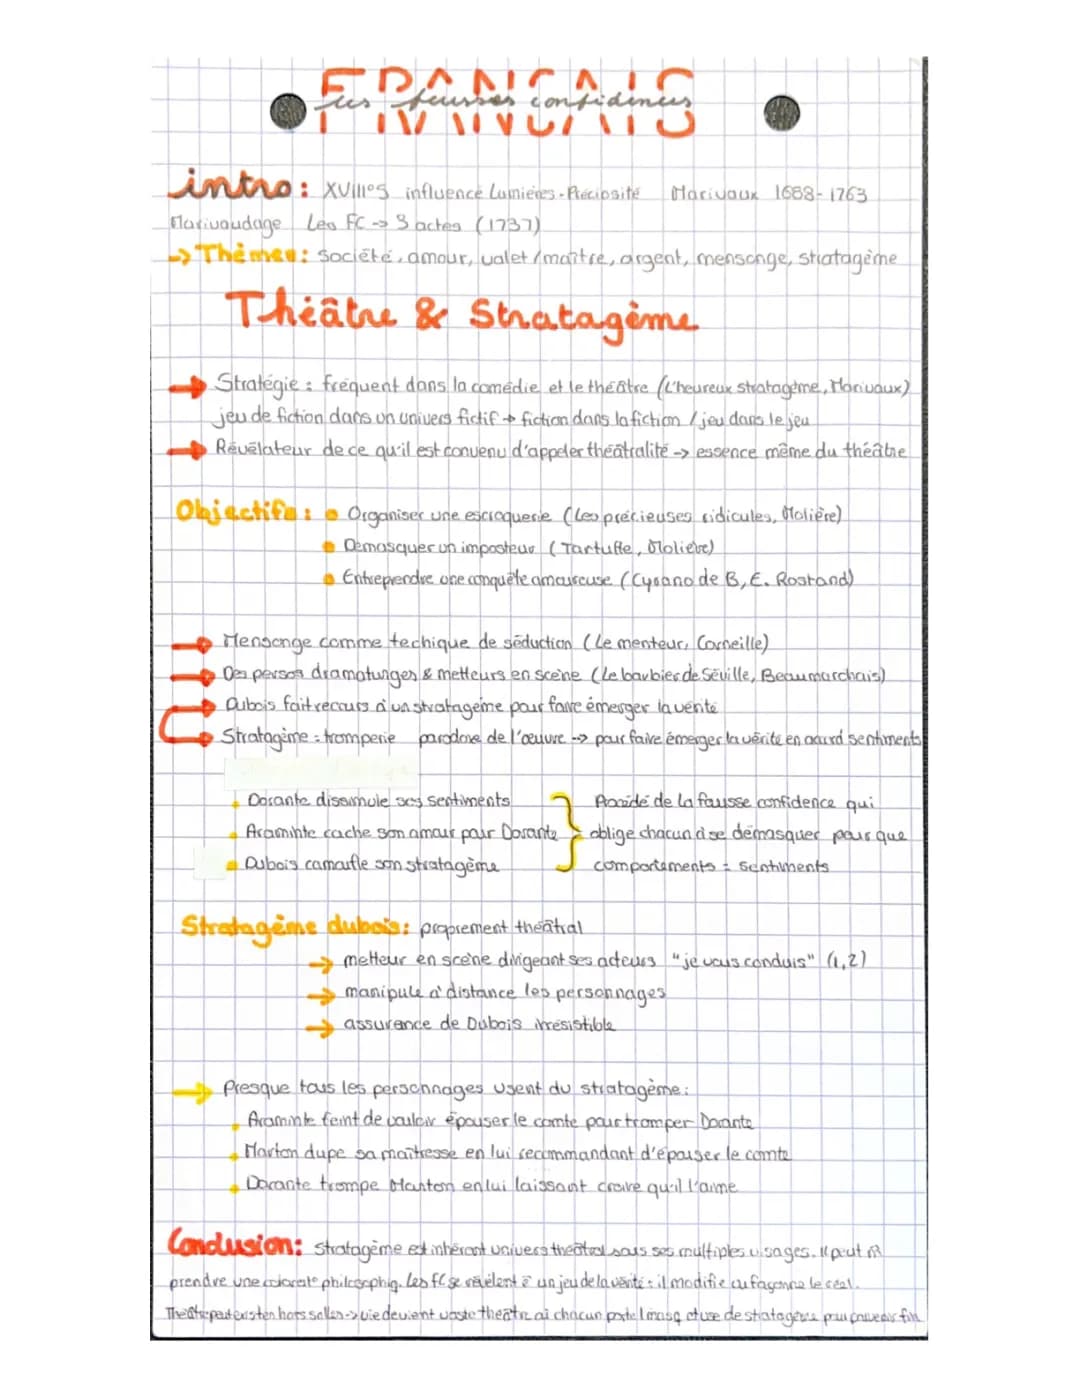 FRANÇAIS
Les fausses confidences
intro: XVIII°S influence Lumières - Préciosité Marivaux 1688-1763
Marivaudage Les FC → 3 actes (1737)
→ Thèmes: société, amour, valet/maître, argent, mensonge, stratagème
Théâtre & Stratagème
Stratégie : fréquent dans la comédie et le théâtre (L'heureux stratagème, Marivaux)
jeu de fiction dans un univers fictif → fiction dans la fiction / jeu dans le jeu
Révélateur de ce qu'il est convenu d'appeler théâtralité → essence même du théâtre
Objectifs: • Organiser une escroquerie (Les précieuses ridicules, Molière)
• Démasquer un imposteur (Tartuffe, Molière)
• Entreprendre une conquête amoureuse (Cyrano de B, E. Rostand)
→ Mensonge comme techique de séduction (Le menteur, Corneille)
→ Des persos dramaturges & metteurs en scène (Le barbier de Séville, Beaumarchais)
→ Dubois fait recours à un stratagème pour faire émerger la vérité
→ Stratagème = tromperie paradoxe de l'œuvre → pour faire émerger la vérité en accord sentiments
• Dorante dissimule ses sentiments
• Araminte cache son amour pour Dorante
• Dubois camoufle son stratagème
Procédé de la fausse confidence qui
oblige chacun à se démasquer pour que
comportements = sentiments
Stratagème dubois: proprement théâtral
→ metteur en scène dirigeant ses acteurs "je vous conduis" (1,2)
→ manipule à distance les personnages
→ assurance de Dubois irrésistible
→ Presque tous les personnages usent du stratagème:
• Araminte feint de vouloir épouser le comte pour tromper Dorante
• Marton dupe sa maîtresse en lui recommandant d'épouser le comte
• Dorante trompe Marton en lui laissant croire qu'il l'aime
Conclusion: stratagème est inhérant univers théâtral sous ses multiples visages. Il peut
prendre une philosophiq. Les FC se révèlent ê un jeu de la vérité : il modifie façonne le réel.
Théâtre peut exister hors salles → vie devient vaste théâtre où chacun porte 1 masq et use de stratagème pour fin